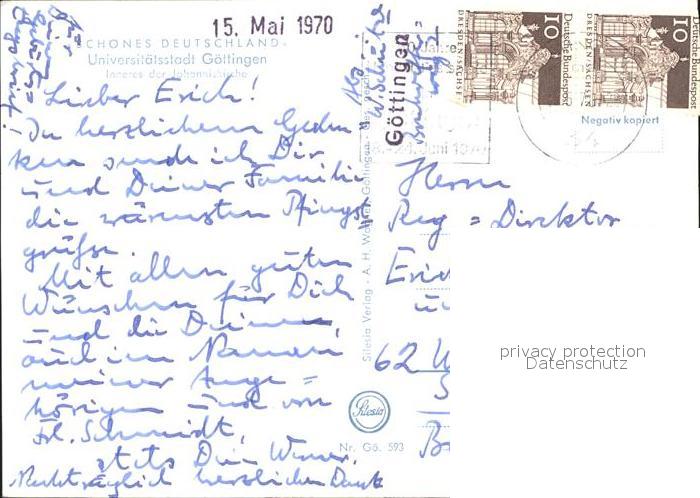 15. Mai 1970
SCHÖNES DEUTSCHLAND
Universitätsstadt Göttingen
Inneres der Johanniskirche
Lieber Erich!
In herzlichem Geden
ken sende ich Dir
und Deiner Familie
die wärmsten Pfingst
grüße.
Mit allen guten
Wünschen für Dich
und die Deinen,
auch im Namen
meiner Ange=
hörigen und von
Frl. Schmidt,
stets Dein Werner.
Nachträglich herzlichen Dank
für
Deinen
Göttingen
Silesia Verlag - A. H. Göttingen
Silesia
Nr. Gö. 593
Juni 1970
10
Deutsche Bundespost
DRESDEN/SACHSEN
10
Deutsche Bundespost
DRESDEN/SACHSEN
Negativ kopiert
Herrn
Reg = Direktor
Erich
62 W
privacy protection
Datenschutz